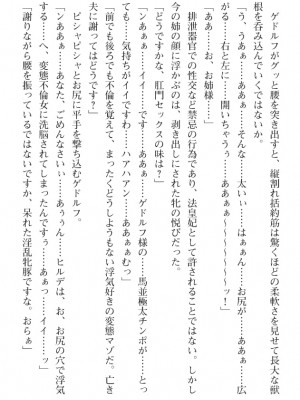 ゲドルフがグッと腰を突き出すと、縦割れ括約筋は驚くほどの柔軟さを見せて長大な獣
根を呑み込んでいくではないか。
「う、うあぁ……あああぁ……そんな……太いぃ……はぁぁん……お尻が……ああぁ……広
がる……右と左に……開いちゃうぅ……あああぁぁ～～～～～～ッ！」
「ああ……お、お姉様……」
排泄器官での性交など禁忌の行為であり、法皇妃として許されることではない。しかし
今の姉の顔に浮かぶのは、剥き出しにされた牝の悦びだった。
「どうですかな、肛門セックスの味は？」
「ンあぁぁ……イイ……です……ああぁ……ゲドルフ様の……馬並極太チンポが……とっ
ても……気持ちがイイですわ……ハアハァン……あああぁぁむっ」
「前でも後ろでも不倫を覚えて、まったくどうしようもない浮気好きの変態マゾだ。亡き
夫に謝ってはどうです？」
ピシャピシャとお尻に平手を撃ち込むゲドルフ。
「ンああぁ……あなた、ごめんなさいぃ……あぅぅん……ヒルデは、お、お尻の穴で浮気
する……へ、変態不倫女に洗脳されてしまったんですぅ……ああぁ……イイッ……イイ……」
「謝りながら腰を振っているではないですか、呆れた淫乱牝豚ですな。おらぁ」